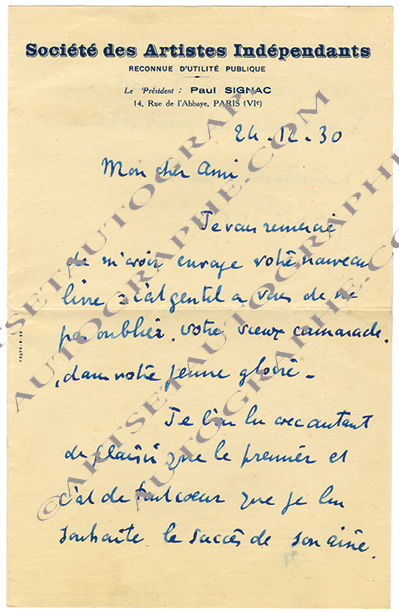 Société des Artistes Indépendants
RECONNUE D'UTILITÉ PUBLIQUE
Le Président : Paul SIGNAC
14, Rue de l'Abbaye, PARIS (VIe)
24.12.30
Mon cher Ami
Je vous remercie
de m'avoir envoyé votre nouveau
livre : c'est gentil a vous de ne
pas oublier, votre vieux camarade,
dans votre jeune gloire -
Je l'ai lu avec autant
de plaisir que le premier et
c'est de tout coeur que je lui
souhaite le succès de son aîné.
©ARTSETAUTOGRAPHE.COM